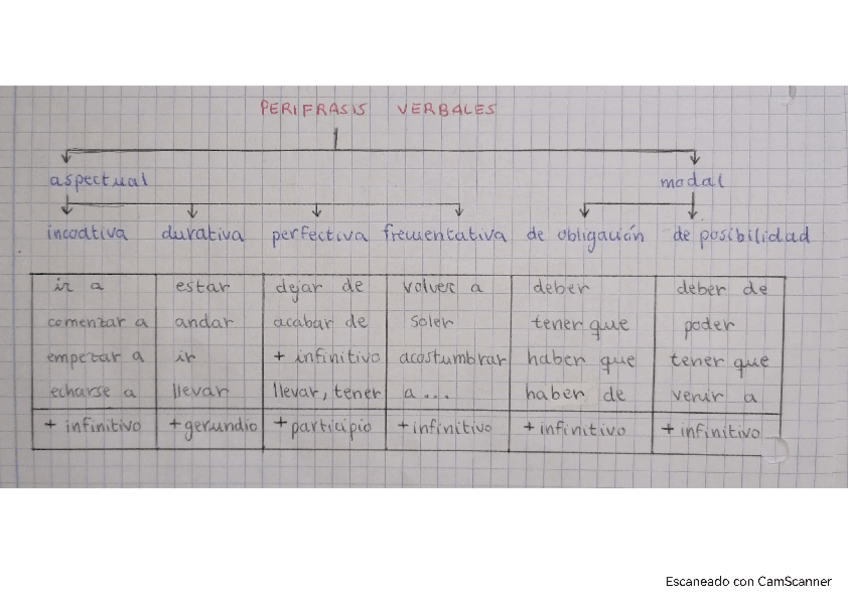 PERIFRASIS VERBALES
aspectual modal
incoativa durativa perfectiva frecuentativa de obligación de posibilidad
ir a estar dejar de volver a deber deber de
comenzar a andar acabar de soler tener que poder
empezar a ir + infinitivo acostumbrar haber que tener que
echarse a llevar llevar, tener a... haber de venir a
+ infinitivo +gerundio +participio +infinitivo +infinitivo +infinitivo
Escaneado con CamScanner